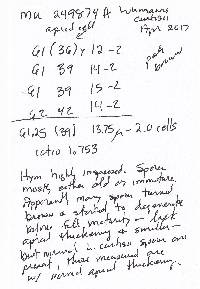 MU 249874 A
apical cell
curtisii
Apr 2017
G1 (36) 4 12-2
G1 39 14-2
G1 39 15-2
G2 42 14-2
pale ground
G1.25 (39) 13.75µ - 2.0 cells
ratio 1:0.753
Hym highly impressed. Spores
mostly either old or immature.
Apparently many spores turned
brown & started to degenerate
before full maturity - lack
apical thickening & similar -
but normal C. curtisii spores are
present, those measured are
w/ normal apical thickening.